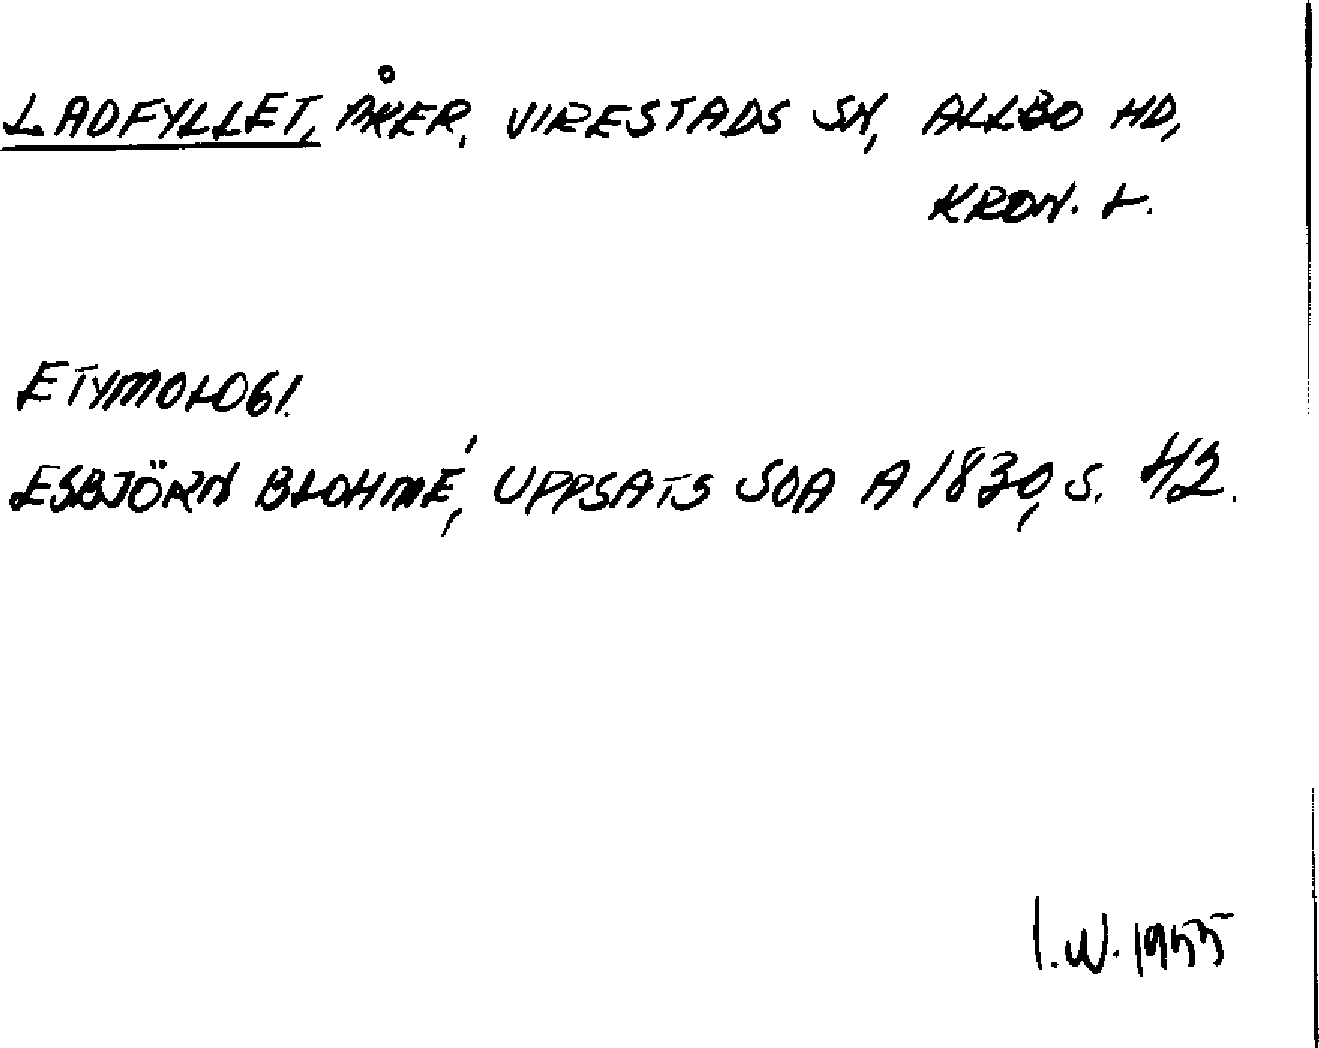 LADFYLLET, ÅKER, VIRESTADS SN, ALLBO HD,
KRON. L.
ETYMOLOGI.
ESBJÖRN BLOHMÉ, UPPSATS SOA A 1830, S. 42.
I.W. 1955